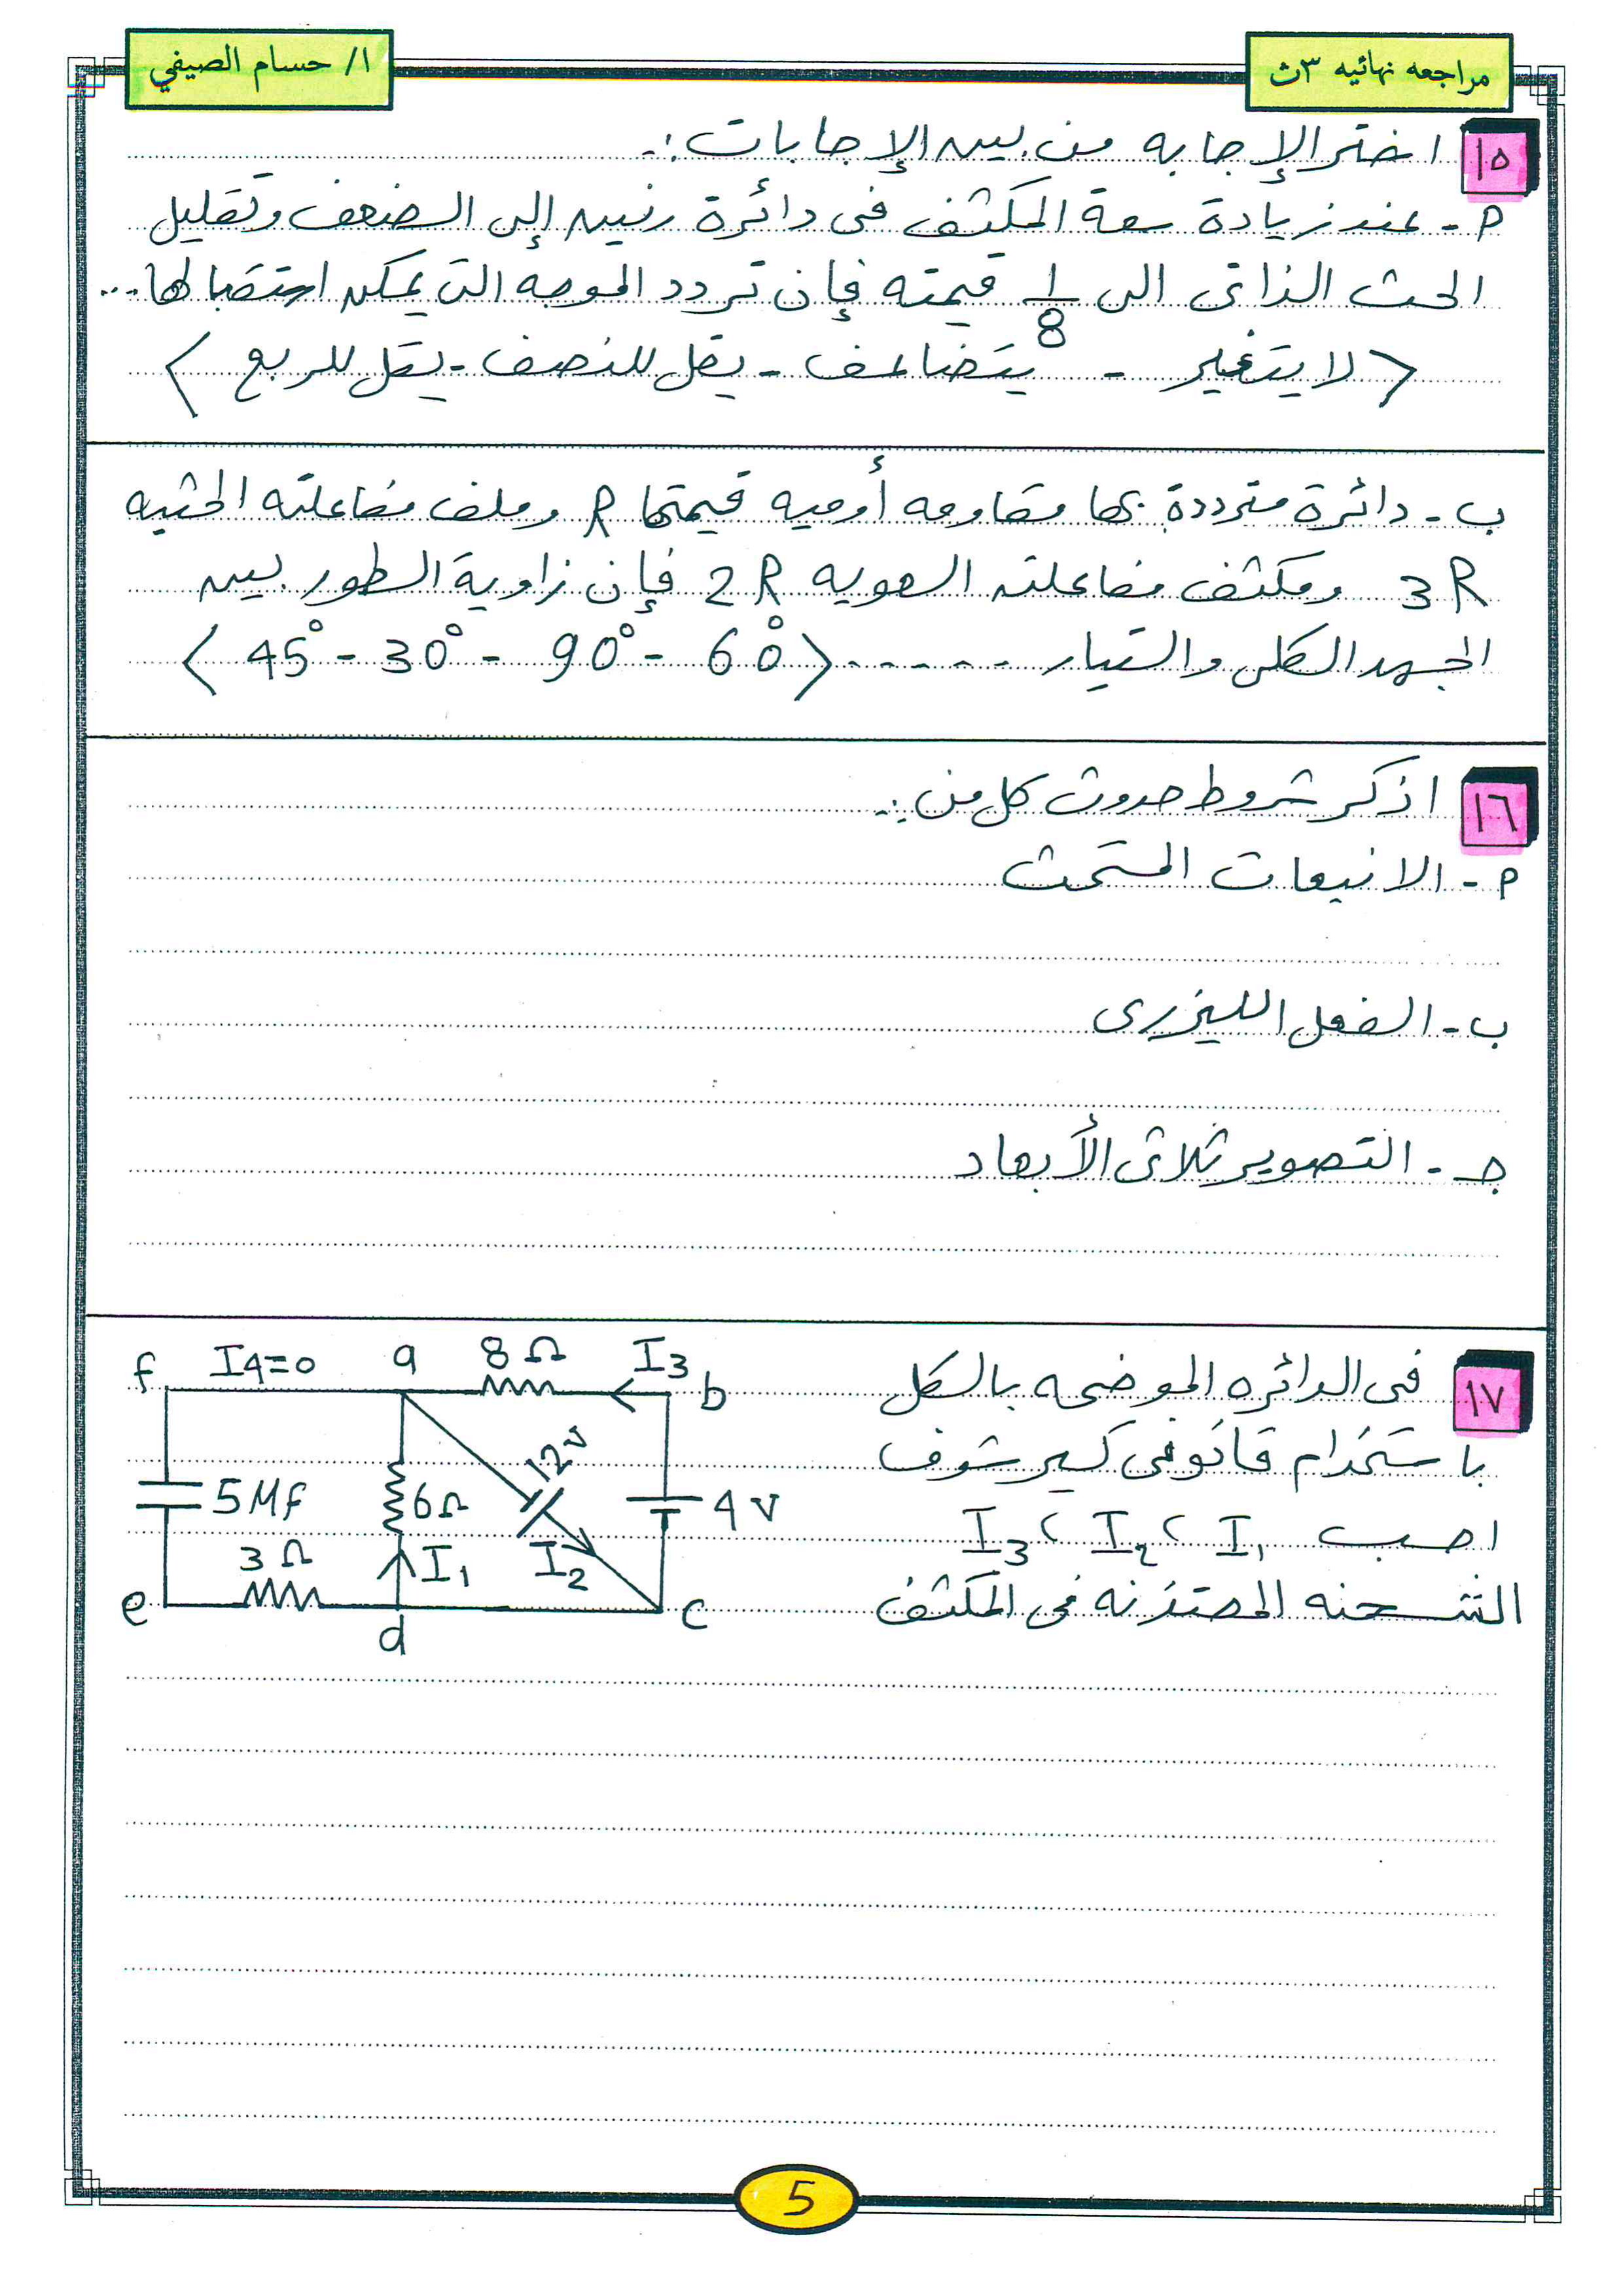 مراجعه نهائيه ٣ث
ا/ حسام الصيفي
١٥ اختر الإجابه من بين الإجابات :-
م - عند زيادة سعة المكثف فى دائرة رنين إلى الضعف وتقليل
الحث الذاتى الى 1/8 قيمته فإن تردد الموجه التى يمكن استقبالها ...
< لا يتغير - يتضاعف - يقل للنصف - يقل للربع >
ب - دائرة مترددة بها مقاومه أوميه قيمتها R وملف مفاعلته الحثيه
3R ومكثف مفاعلته السعويه 2R فإن زاوية الطور بين
الجهد الكلى والتيار ...... < 45° - 30° - 90° - 60° >
١٦ اذكر شروط حدوث كل من :-
م - الانبعاث المستحث
ب - الفعل الليزرى
جـ - التصوير ثلاثى الأبعاد
١٧ فى الدائره الموضحه بالشكل
باستخدام قانونى كيرشوف
احسب I1 ، I2 ، I3
الشحنه المختزنه فى المكثف
f I4=0 a 8Ω I3 b
12v
5Mf 6Ω 4v
3Ω I1 I2
e d c
5